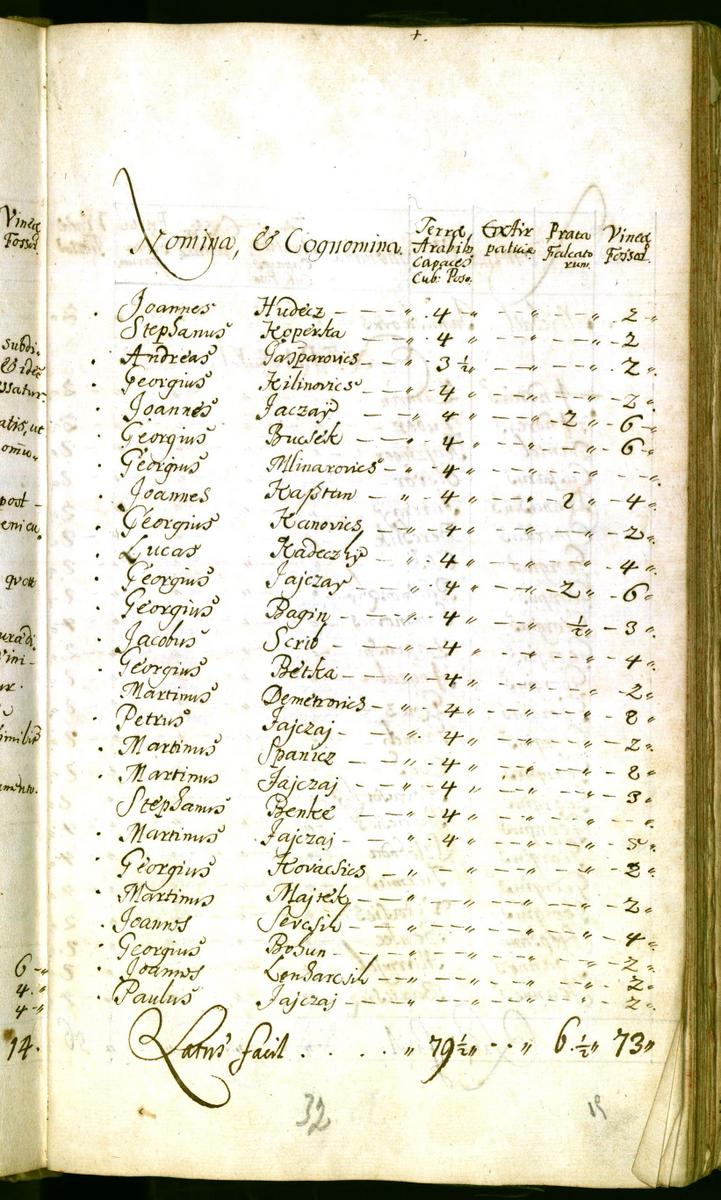 Nomina, & Cognomina. Terræ Arabiles Capaces Cub: Poso: Extirpatitiæ Prata Falcatorum. Vineæ Fossat:
Joannes Hudecz — — " 4 — " — — " — 2 "
Stephanus Koperka — " 4 — " — — " — 2
Andreas Gasparovics — " 3 ½ " — " — — " — 2 "
Georgius Kilinovics — " 4 — " — — " — 2 "
Joannes Jaczay — — " 4 — " — 2 " — 6 "
Georgius Bucsek — — " 4 — " — — " — 6 "
Georgius Mlinarovics — " 4 — " — — " — — "
Joannes Kaßtan — " 4 — " — 2 " — 4 "
Georgius Kanovics — " 4 — " — — " — 2 "
Lucas Kadeczky — " 4 — " — — " — 4 "
Georgius Jajczay — " 4 — " — 2 " — 6 "
Georgius Bagin — — " 4 — " — ½ " — 3 "
Jacobus Scrib — — " 4 — " — — " — 4 "
Georgius Betka — — " 4 — " — — " — 2 "
Martinus Demetrovics — " 4 — " — — " — 8 "
Petrus Jajczaj — " 4 — " — — " — 2 "
Martinus Spanicz — " 4 — " — — " — 8 "
Martinus Jajczaj — " 4 — " — — " — 3 "
Stephanus Benke — — " 4 — " — — " — — "
Martinus Jajczaj — " 4 — " — — " — 5 "
Georgius Kovacsics — " — — " — — " — 2 "
Martinus Majtek — — " — — " — — " — 2 "
Joannes Sevcsik — — " — — " — — " — 4 "
Georgius Bohun — — " — — " — — " — 2 "
Joannes Lenharcsik — — " — — " — — " — 2 "
Paulus Jajczaj — — " — — " — — " — 2 "
Latus facit . . . . " 79 ½ " — " 6 ½ " 73 "
32